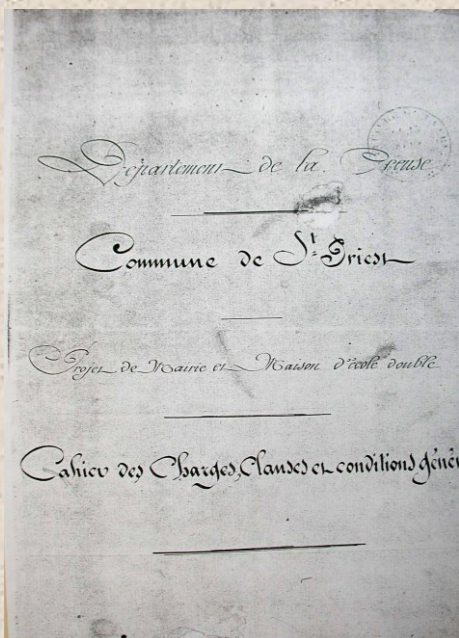 Département de la Creuse
Commune de St Priest
Projet de Mairie et Maison d'école double
Cahier des Charges, Clauses et conditions génér